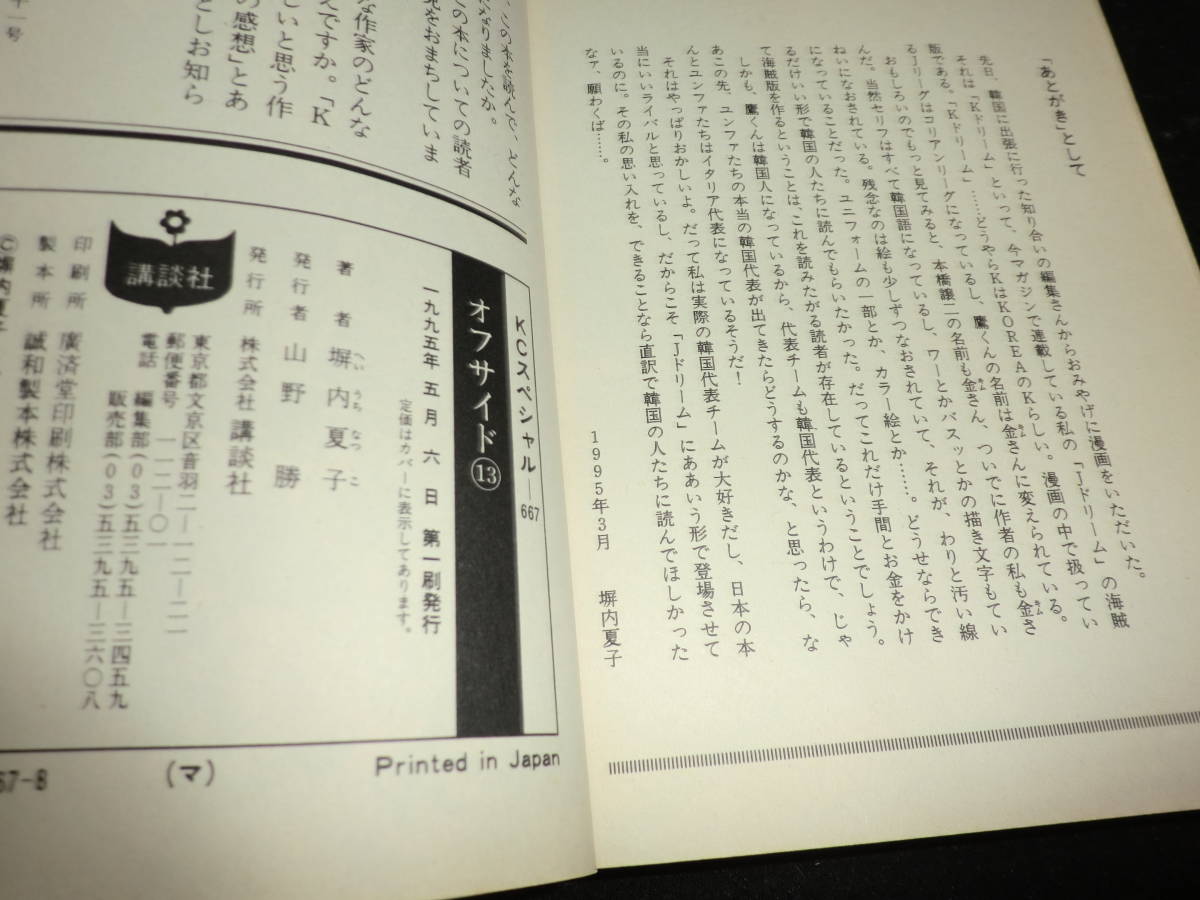 「あとがき」として
先日、韓国に出張に行った知り合いの編集さんからおみやげに漫画をいただいた。
それは「Kドリーム」といって、今マガジンで連載している私の「Jドリーム」の海賊
版である。「Kドリーム」……どうやらKはKOREAのKらしい。漫画の中で扱ってい
るJリーグはコリアンリーグになっているし、鷹くんの名前は金さんに変えられている。
おもしろいのでもっと見てみると、本橋譲二の名前も金さん、ついでに作者の私も金さ
んだ。当然セリフはすべて韓国語になっているし、ワーとかバスッとかの描き文字もてい
ねいになおされている。残念なのは絵も少しずつなおされていて、それが、わりと汚い線
になっていることだった。ユニフォームの一部とか、カラー絵とか……。どうせならでき
るだけいい形で韓国の人たちに読んでもらいたかった。だってこれだけ手間とお金をかけ
て海賊版を作るということは、これを読みたがる読者が存在しているということでしょう。
しかも、鷹くんは韓国人になっているから、代表チームも韓国代表というわけで、じゃ
あこの先、ユンファたちの本当の韓国代表が出てきたらどうするのかな、と思ったら、な
んとユンファたちはイタリア代表になっているそうだ！
それはやっぱりおかしいよ。だって私は実際の韓国代表チームが大好きだし、日本の本
当にいいライバルと思っているし、だからこそ「Jドリーム」にああいう形で登場させて
いるのに。その私の思い入れを、できることなら直訳で韓国の人たちに読んでほしかった
なァ、願わくば……。
1995年3月 塀内夏子
、この本を読んで、どんな
になりましたか。
この本についての読者
見をおまちしていま
な作家のどんな
えですか。「K
しいと思う作
の感想」とあ
としお知ら
十一号
KCスペシャル—667
オフサイド⑬
一九九五年五月六日 第一刷発行
定価はカバーに表示してあります。
著者 塀内夏子
へいうちなつこ
発行者 山野勝
発行所 株式会社 講談社
東京都文京区音羽二—一二—二一
郵便番号 一一二—〇一
電話 編集部(03)五三九五—三四五九
販売部(03)五三九五—三六〇八
講談社
印刷所 廣済堂印刷株式会社
製本所 誠和製本株式会社
©塀内夏子
67-8
(マ)
Printed in Japan